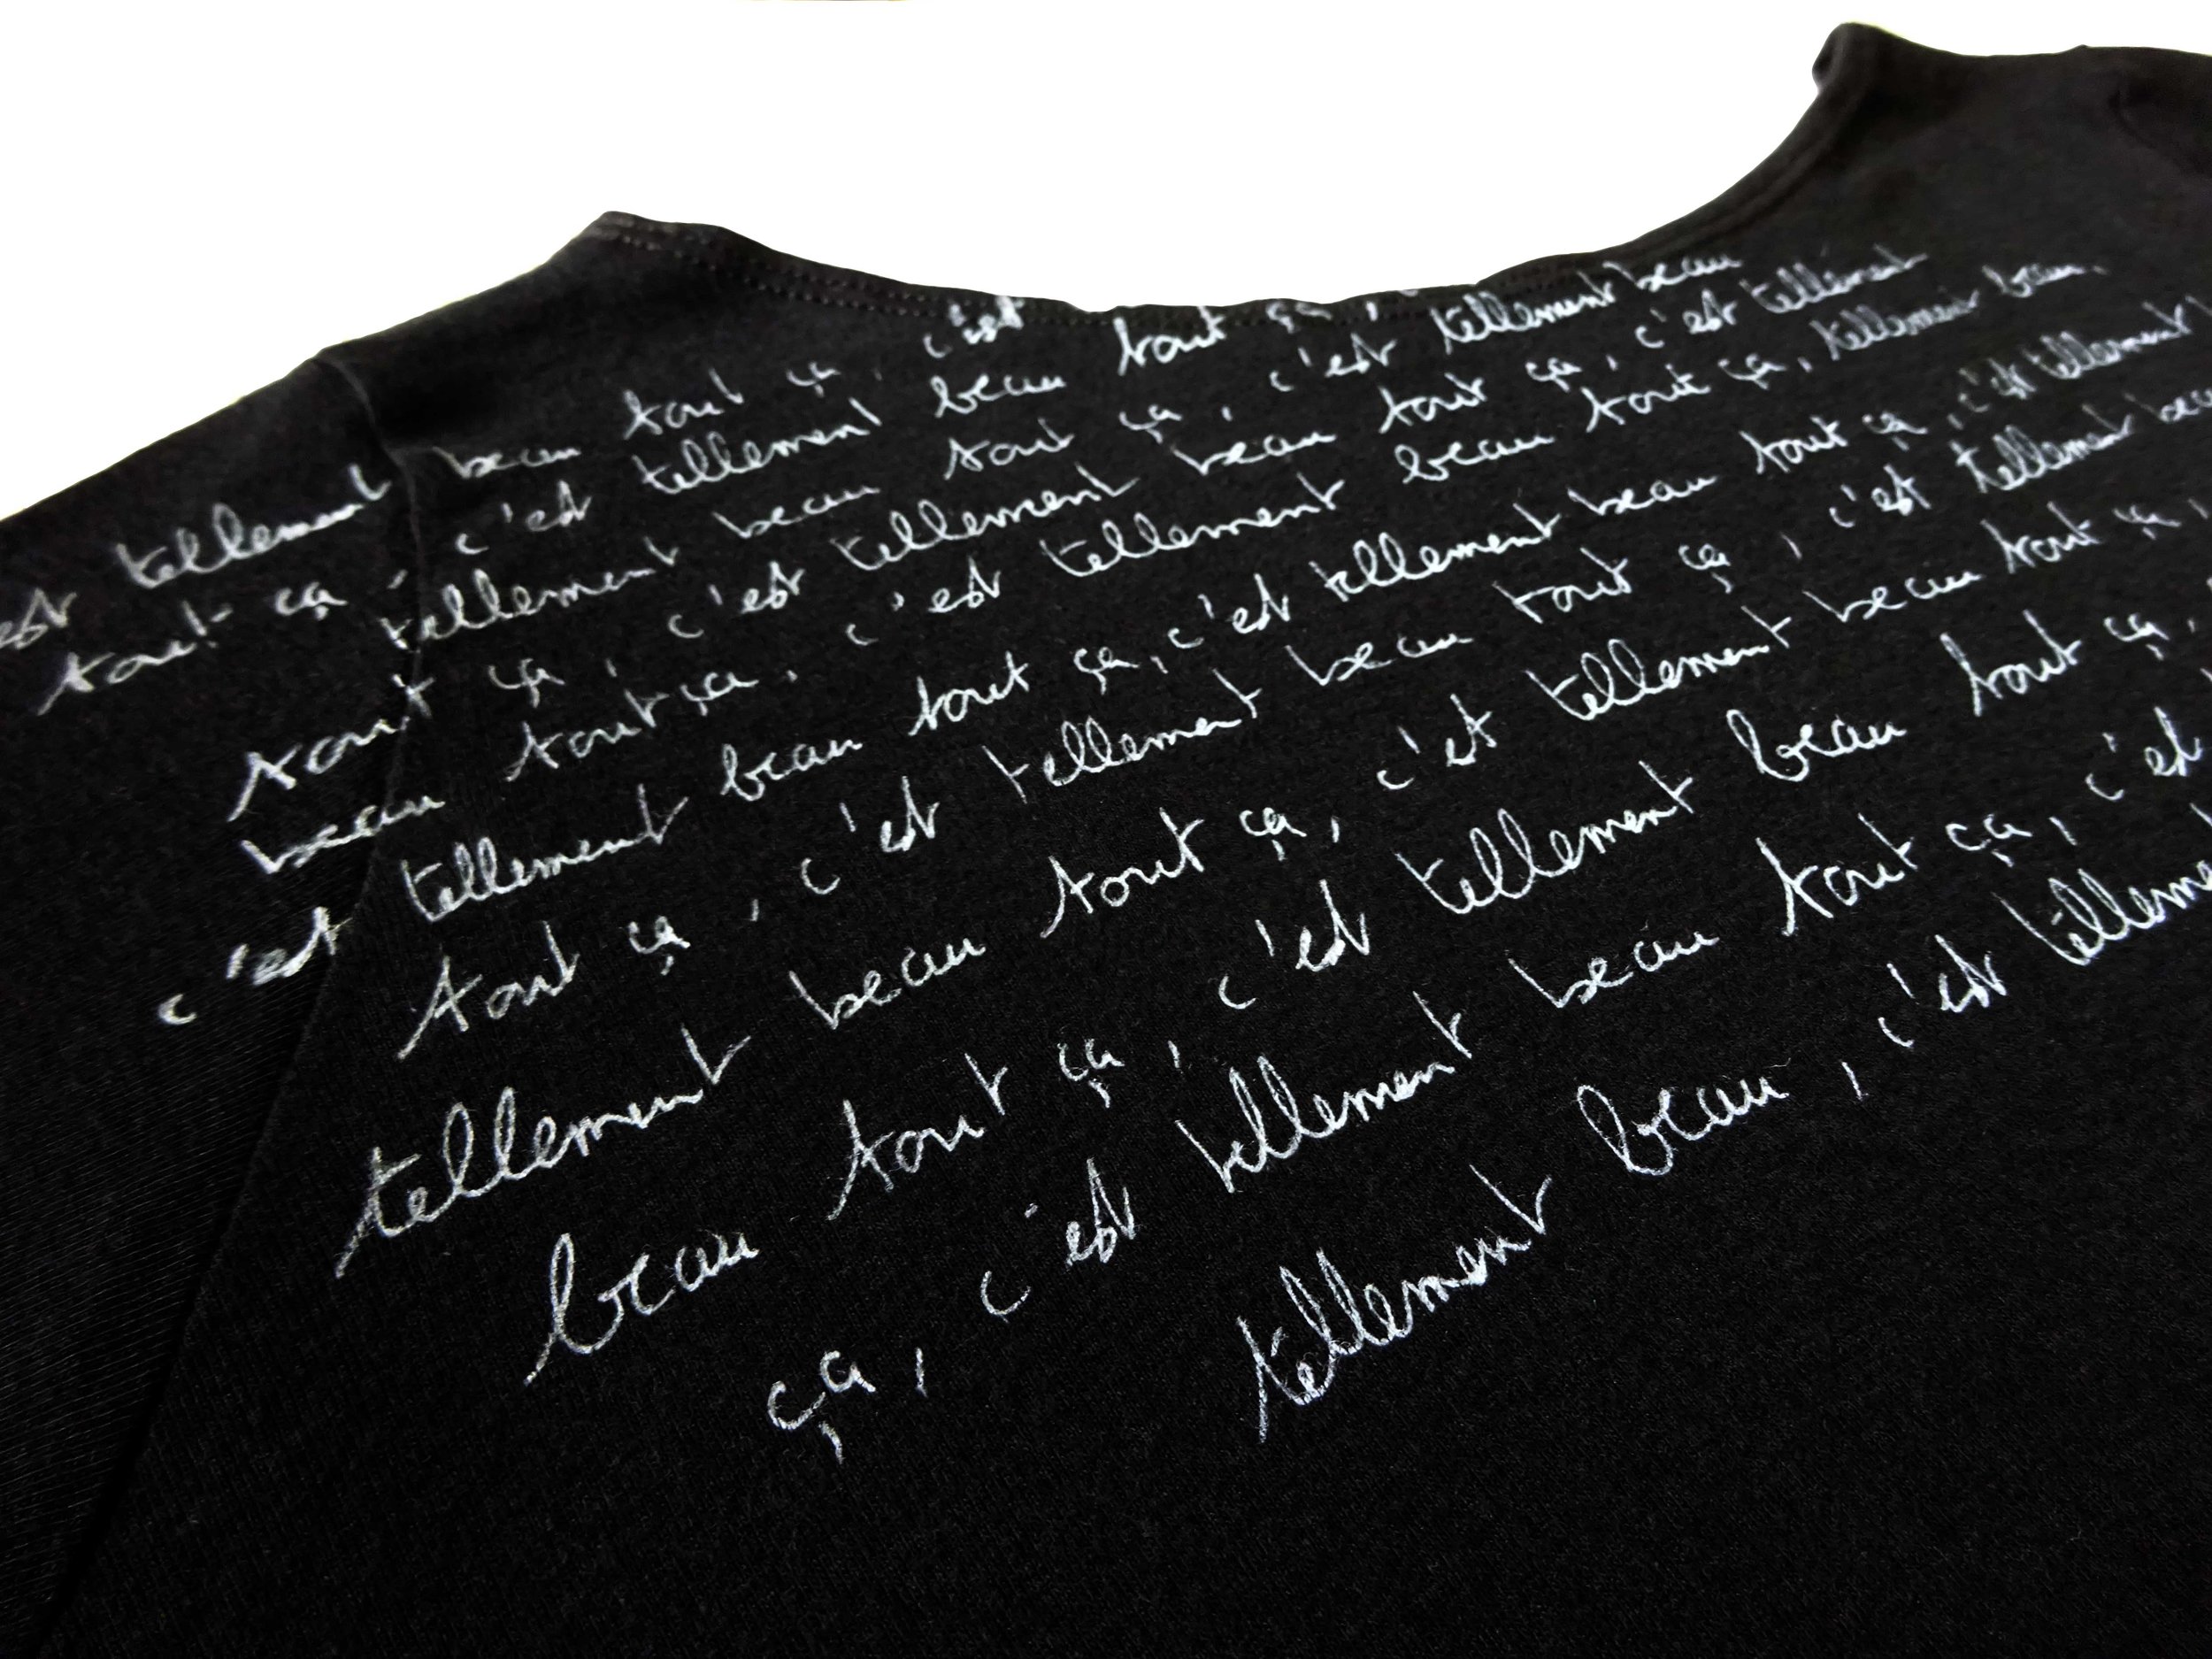 est tellement beau tout ça, c'est
tout ça, c'est tellement beau tout ça,
tellement beau tout ça, c'est tellement beau
tout ça, c'est tellement beau tout ça, c'est tellement
beau tout ça, c'est tellement beau tout ça, tellement beau.
c'est tellement beau tout ça, c'est tellement beau tout ça, c'est tellement
tout ça, c'est tellement beau tout ça, c'est tellement beau
tellement beau tout ça, c'est tellement beau tout ça,
beau tout ça, c'est tellement beau tout ça,
ça, c'est tellement beau tout ça, c'est
tellement beau, c'est telleme